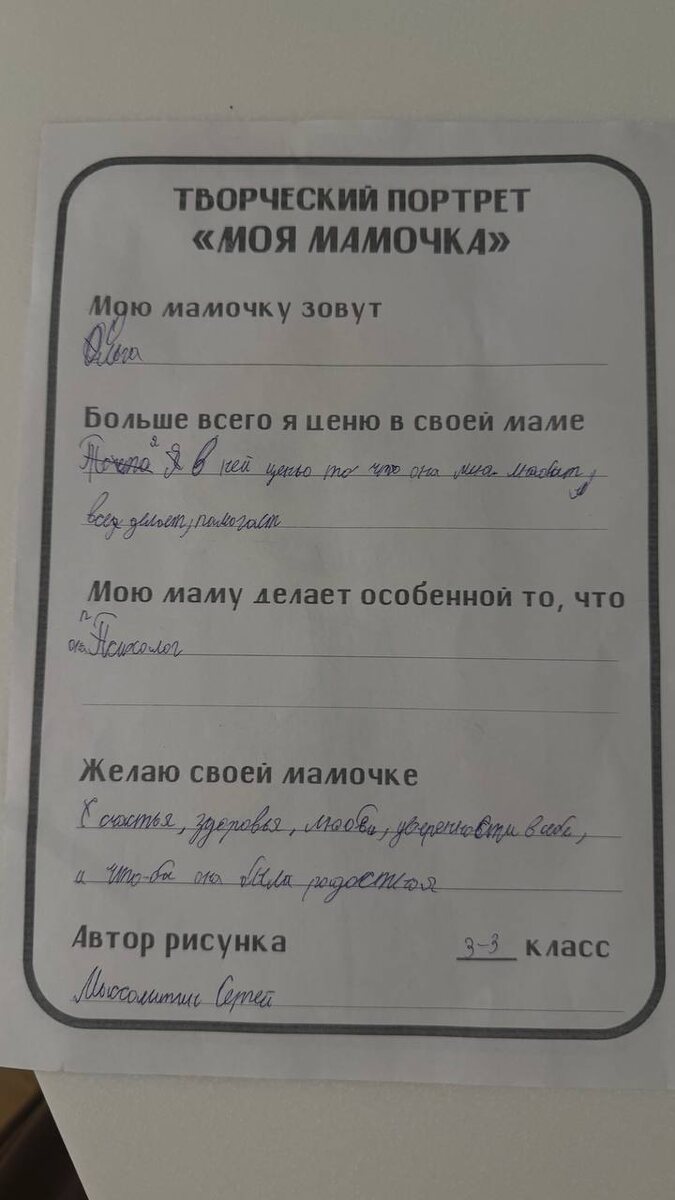 ТВОРЧЕСКИЙ ПОРТРЕТ
«МОЯ МАМОЧКА»
Мою мамочку зовут
Ольга
Больше всего я ценю в своей маме
я В ней ценью то что она мня любит,
всех делает, помогает
Мою маму делает особенной то, что
она Психолог
Желаю своей мамочке
счастья, здоровья, любви, уверенности в себе,
и что-бы она была радостной
Автор рисунка 3-3 класс
Сергей